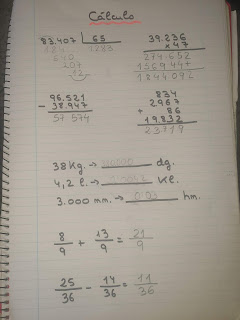 Cálculo
83.407 65
1283
640
207
12
39.236
x 47
274.652
156944+
1844092
96.521
- 38.947
57 574
834
2967
+ 86
19.832
23719
38 Kg. → dg.
4,2 l. → Kl.
3.000 mm. → 0'03 hm.
8/9 + 13/9 = 21/9
25/36 - 14/36 = 11/36